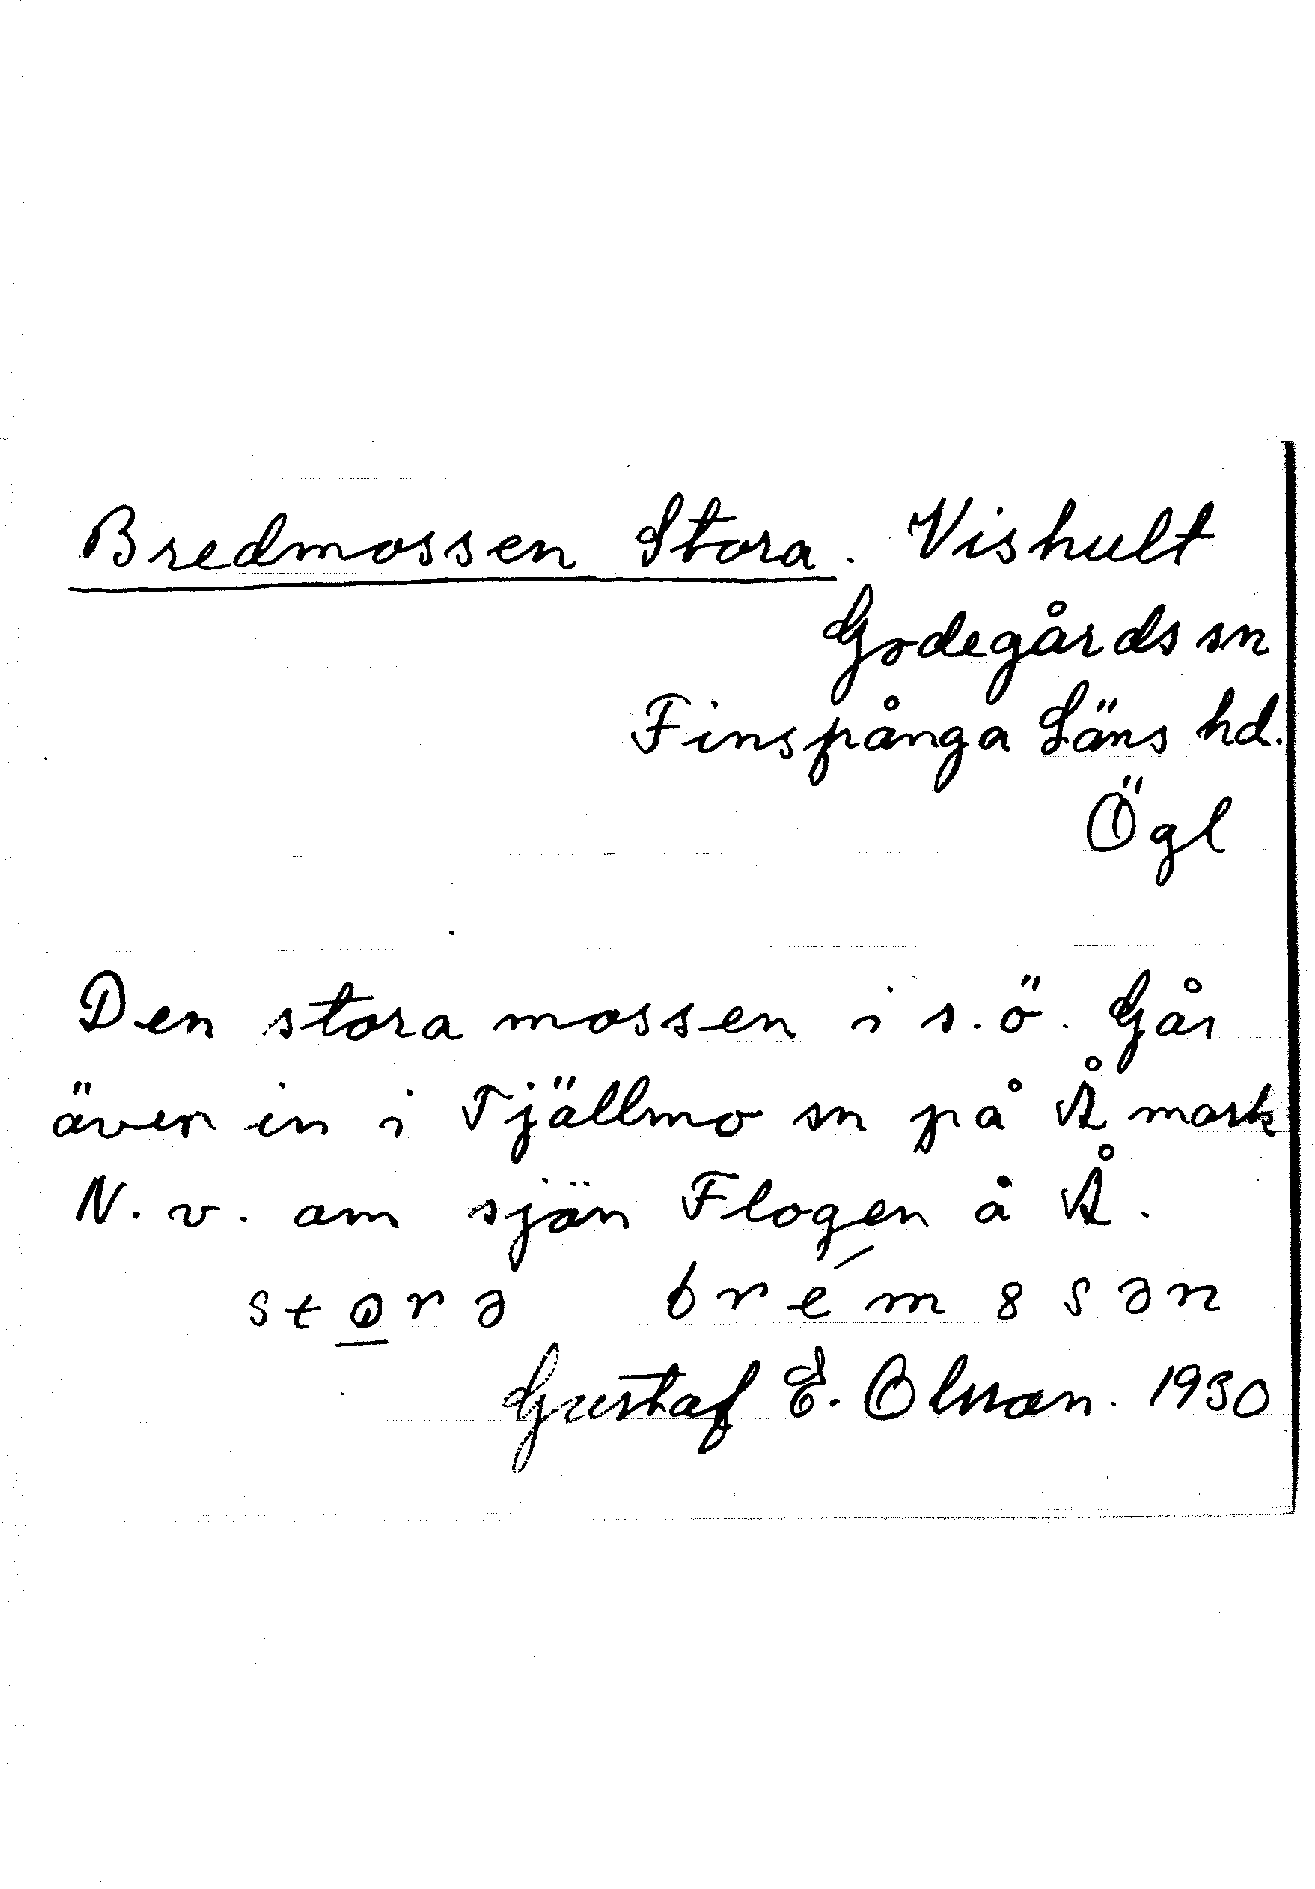 Bredmossen Stora. Vishult
Godegårds sn
Finspånga Läns hd.
Ögl
Den stora mossen i s.ö. Går
även in i Tjällmo sn på Å mark
N. v. om sjön Flogen å Å.
stọrə brém8sən
Gustaf E. Olsson. 1930